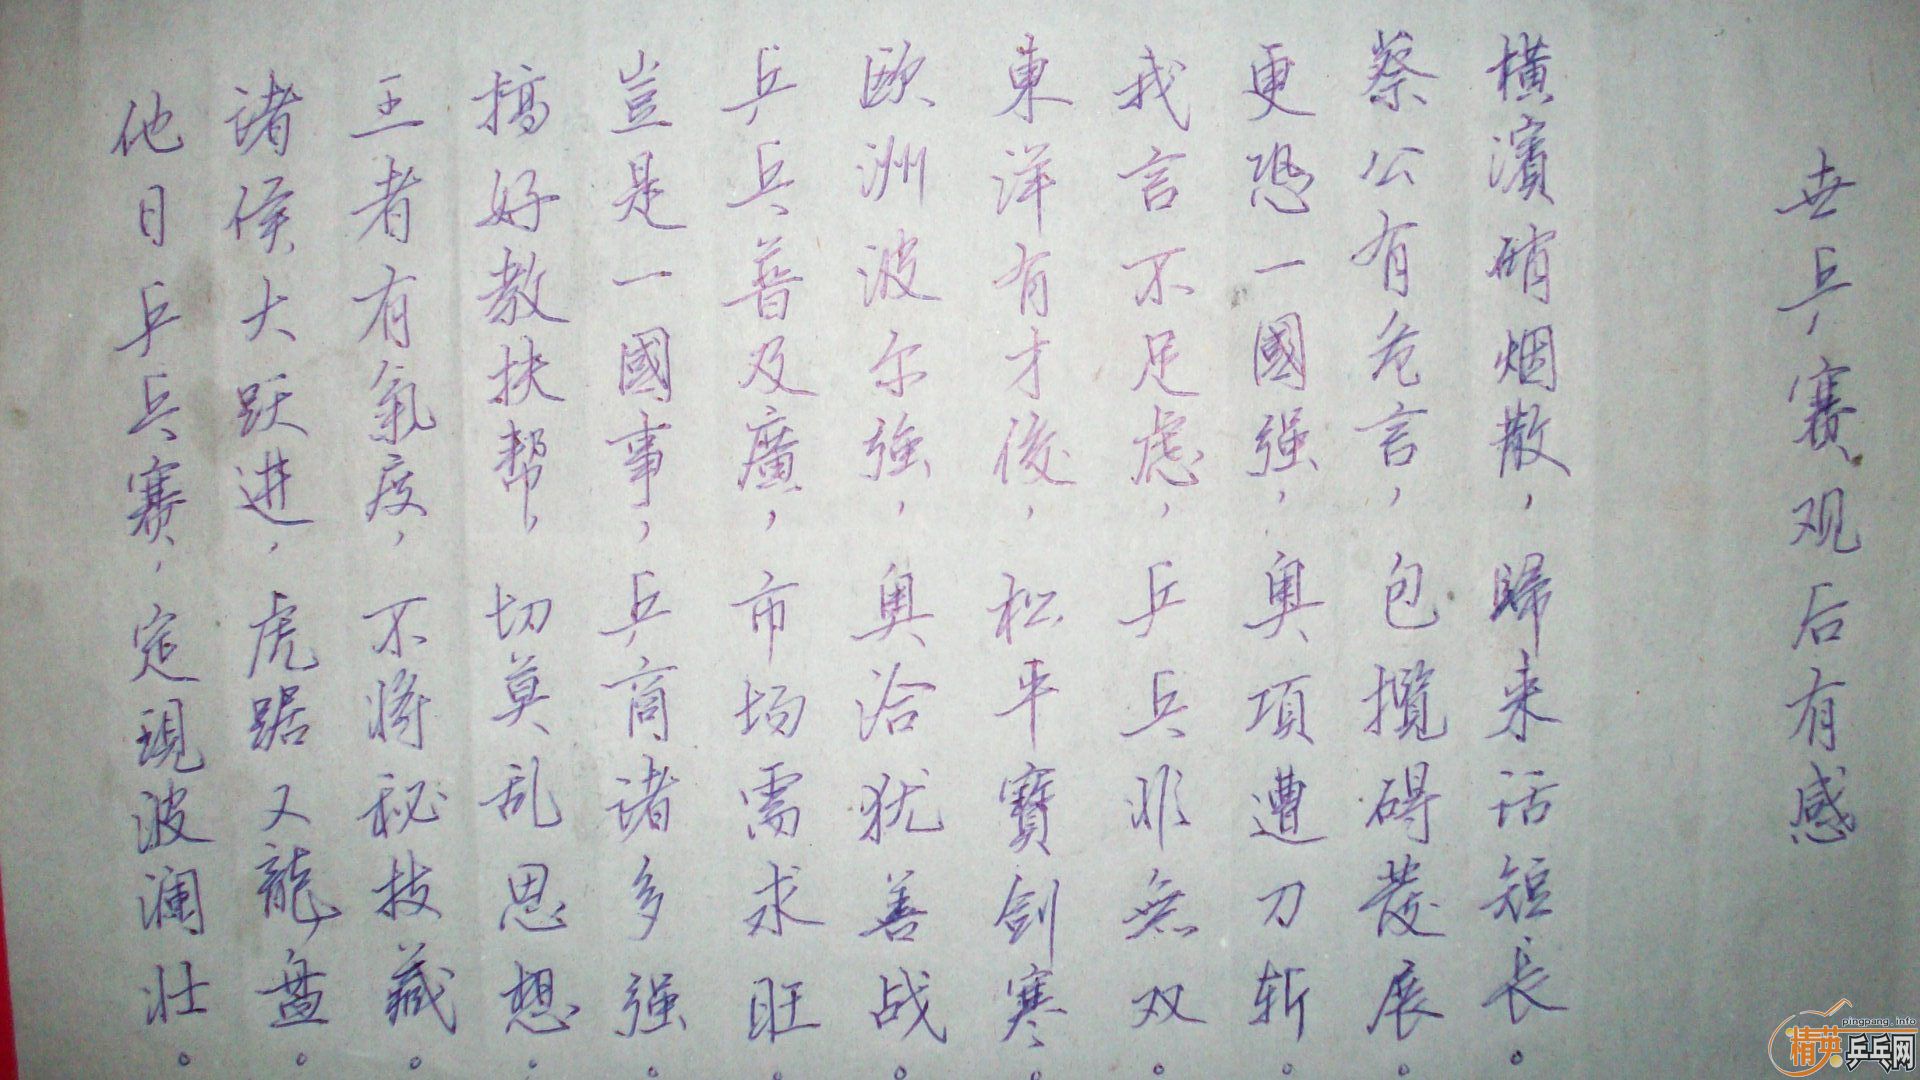 世乒赛观后有感
橫濱硝烟散，歸来话短长。
蔡公有危言，包攬碍發展。
更恐一國强，奥項遭刀斩。
我言不足虑，乒乓非無双。
東洋有才俊，松平寶剑寒。
欧洲波尔強，奥洽犹善战。
乒乓普及廣，市场需求旺。
豈是一國事，乒商诸多强。
搞好教扶帮，切莫乱思想。
王者有氣度，不将秘技藏。
诸侯大跃进，虎踞又龍盘。
他日乒乓赛，定現波澜壮。
pingpang.info
精英乒乓网